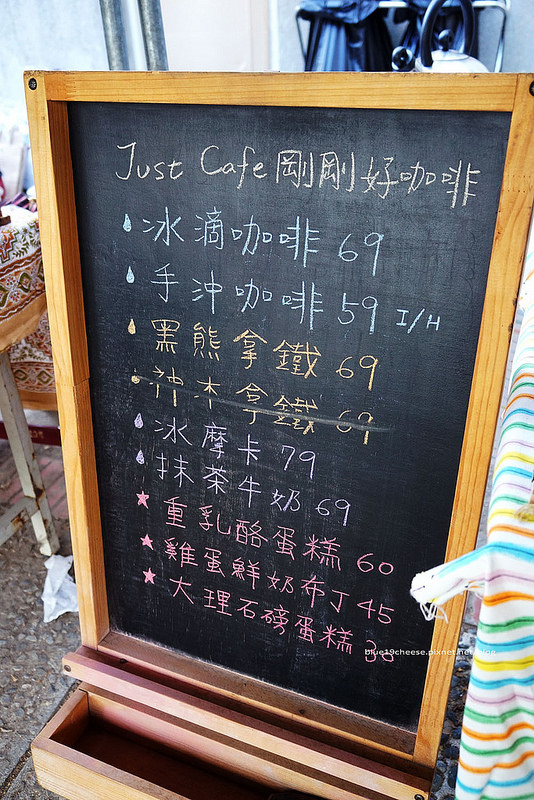 Just Cafe 剛剛好咖啡
冰滴咖啡 69
手沖咖啡 59 I/H
黑熊拿鐵 69
神木拿鐵 69
冰摩卡 79
抹茶牛奶 69
重乳酪蛋糕 60
雞蛋鮮奶布丁 45
大理石磅蛋糕 35
blue19cheese.pixnet.net/blog